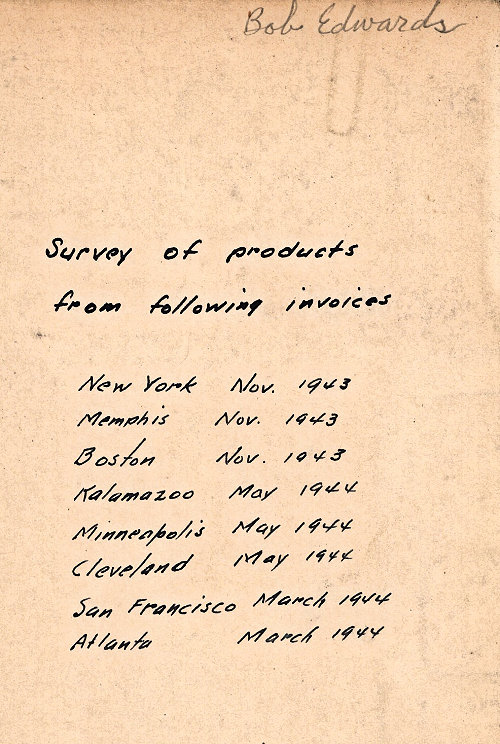 Bob Edwards
Survey of products
from following invoices
New York Nov. 1943
Memphis Nov. 1943
Boston Nov. 1943
Kalamazoo May 1944
Minneapolis May 1944
Cleveland May 1944
San Francisco March 1944
Atlanta March 1944